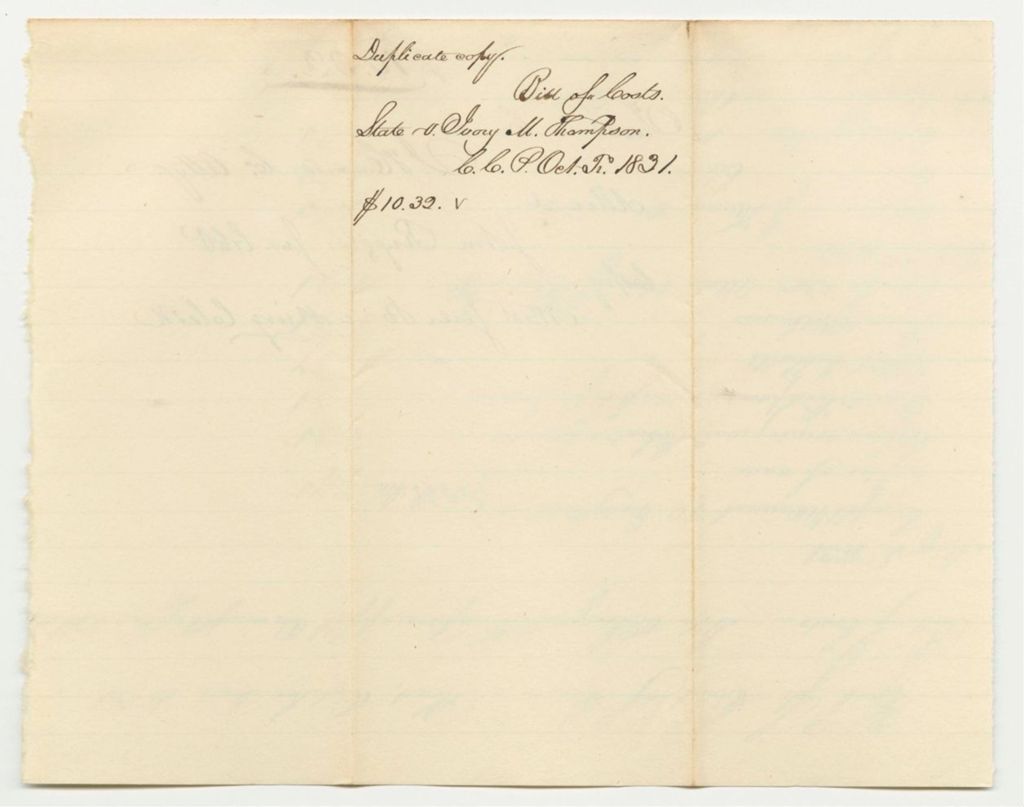 Duplicate copy.
Bill of Costs.
State v. Ivory M. Thompson.
C. C. P. Oct. Tr. 1831.
$10.32. v